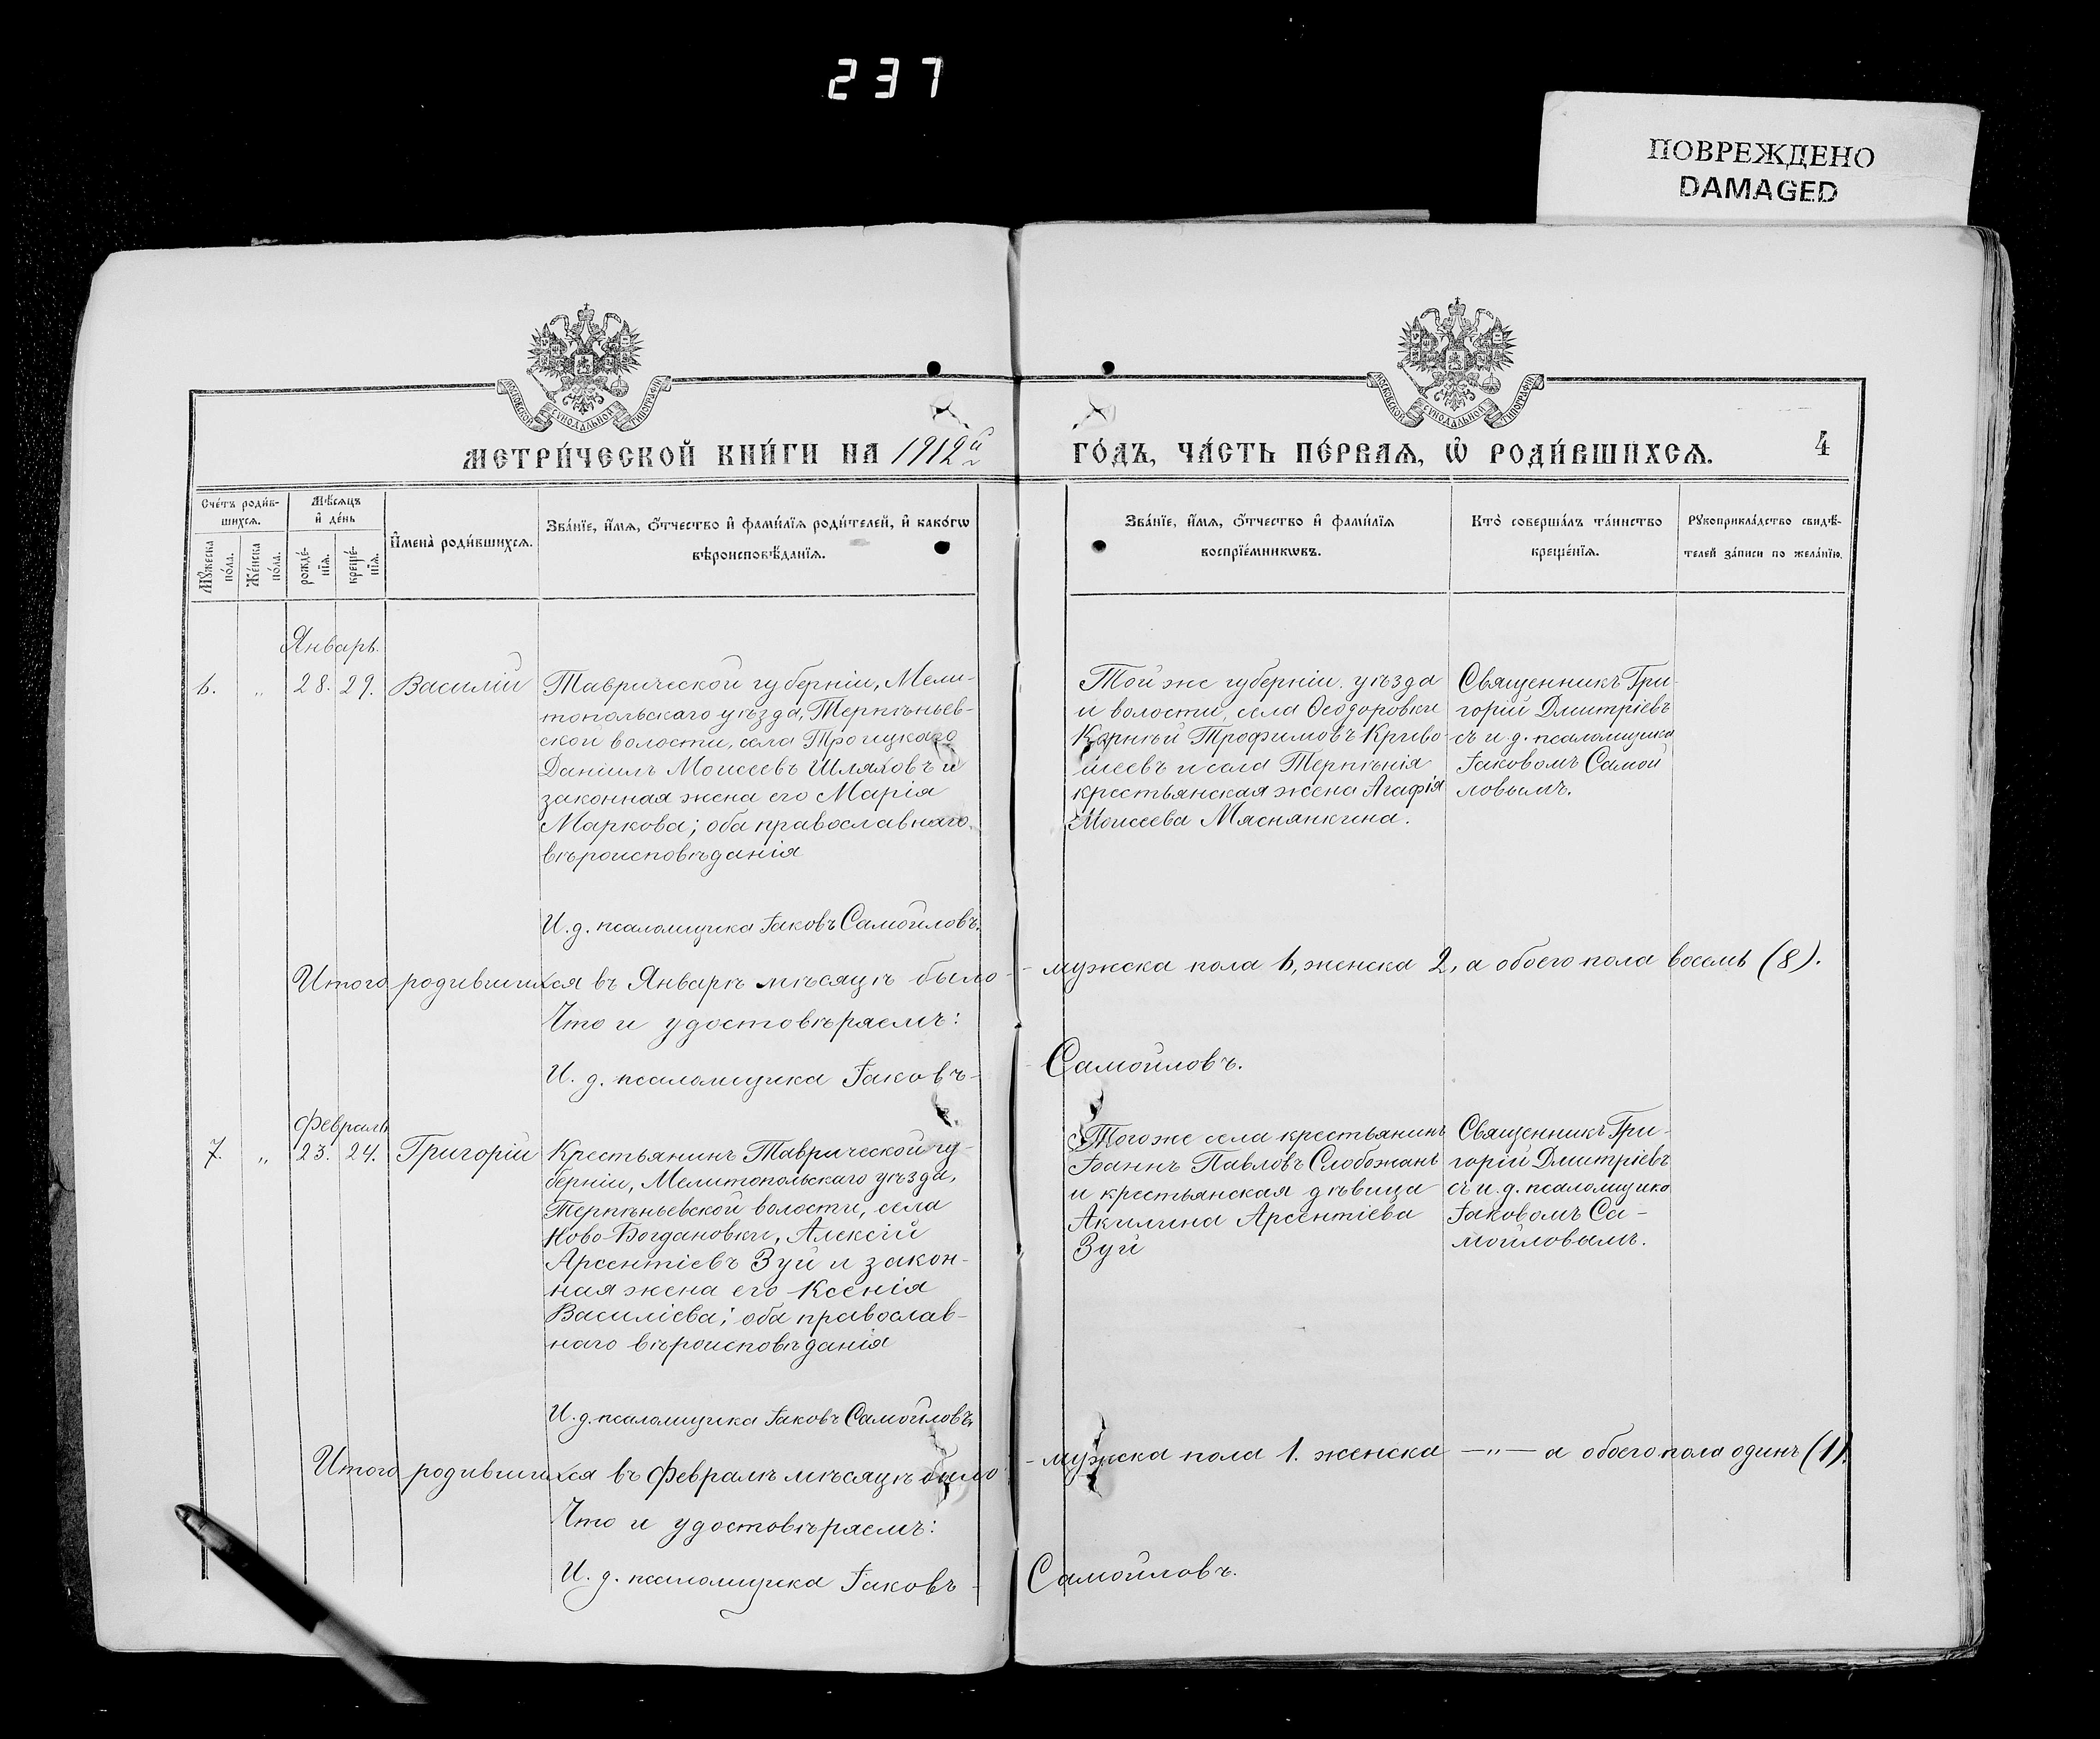 237
ПОВРЕЖДЕНО
DAMAGED
МОСКОВСКОЙ СѴНОДАЛЬНОЙ ТИПОГРАФІИ
МОСКОВСКОЙ СѴНОДАЛЬНОЙ ТИПОГРАФІИ
МЕТРИ́ЧЕСКОЙ КНИ́ГИ НА 1912й
ГО́ДЪ, ЧА́СТЬ ПЕ́РВАѦ, Ѡ҆ РОДИ́ВШИХСѦ. 4
Сче́тъ роди́в-
шихсѧ.
Мꙋ́жеска
по́ла.
Же́нска
по́ла.
Мѣ́сѧцъ
и҆ де́нь
рожде́-
нїѧ.
креще́-
нїѧ.
И҆мена̀ роди́вшихсѧ.
Зва́нїе, и҆́мѧ, ѻ҆́тчество и҆ фами́лїѧ роди́телей, и҆ како́гѡ
вѣроисповѣ́данїѧ.
Зва́нїе, и҆́мѧ, ѻ҆́тчество и҆ фами́лїѧ
воспрїе́мникѡвъ.
Кто̀ соверша́лъ та́инство
креще́нїѧ.
Рꙋкоприкла́дство свидѣ́-
телей за́писи по жела́нїю.
Январь.
6. „ 28. 29. Василій
Таврической губерніи, Мели-
топольскаго уѣзда, Терпѣньев-
ской волости, села Троицкаго
Даніилъ Моисеевъ Шляховъ и
законная жена его Марія
Маркова; оба православнаго
вѣроисповѣданія
Той же губерніи. уѣзда
и волости, села Ѳеодоровки
Корнѣй Трофимовъ Криво-
шеевъ и села Терпѣнія
крестьянская жена Агафія
Моисеева Мяснянкина.
Священникъ Гри-
горій Дмитріевъ
съ и. д. псаломщика
Іаковомъ Самой
ловымъ.
И. д. псаломщика Іаковъ Самойловъ.
Итого родившихся въ Январѣ мѣсяцѣ было - - мужска пола 6, женска 2, а обоего пола восемь (8).
Что и удостовѣряемъ:
И. д. псаломщика Іаковъ - - Самойловъ.
Февраль
7. „ 23. 24. Григорій
Крестьянинъ Таврической гу-
берніи, Мелитопольскаго уѣзда,
Терпѣньевской волости, села
Ново-Богдановки, Алексій
Арсентіевъ Зуй и закон-
ная жена его Ксенія
Василіева; оба православ-
наго вѣроисповѣданія
Того же села крестьянинъ
Іоаннъ Павловъ Слобожанъ
и крестьянская дѣвица
Акилина Арсентіева
Зуй
Священникъ Гри-
горій Дмитріевъ
съ и. д. псаломщико
Іаковомъ Са-
мойловымъ.
И. д. псаломщика Іаковъ Самойловъ
Итого родившихся въ Февралѣ мѣсяцѣ было - - мужска пола 1. женска —„— а обоего пола одинъ (1).
Что и удостовѣряемъ:
И. д. псаломщика Іаковъ - Самойловъ.